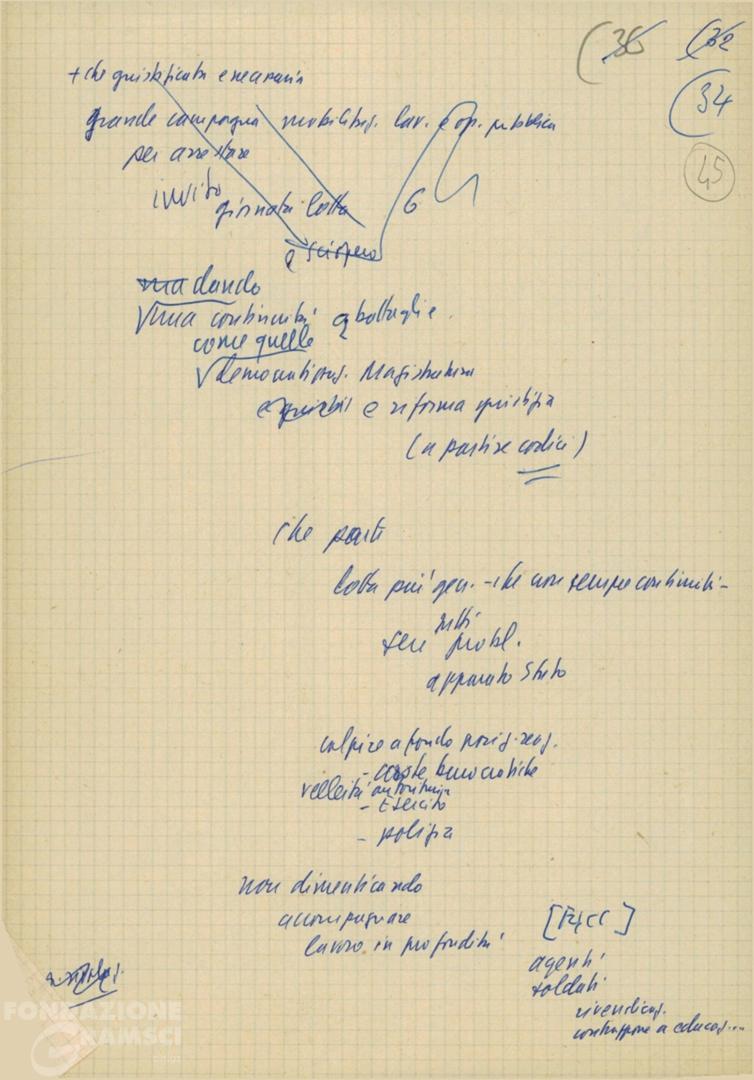 (36 (32
(34
45
+ che giustificata e necessaria
grande campagna mobilitaz. lav. e op. pubblica
per arrestare
invito giornata lotta 6
e sciopero
ma dando
una continuità battaglie
come quelle
democratizzaz. Magistratura
e riforma giustizia
(a partire codici)
che parte
lotta più gen. - che non sempre continuità -
tutti
probl.
apparato Stato
colpire a fondo posiz. reaz.
- caste burocratiche
velleità autoritarie
- Esercito
- polizia
non dimenticando
accompagnare [FGCI]
lavoro in profondità
agenti
soldati
rivendicaz.
FONDAZIONE
GRAMSCI